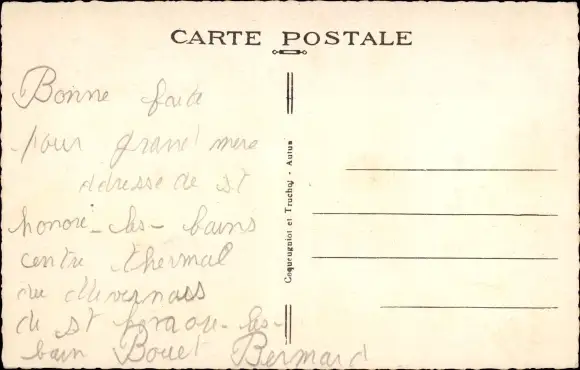 CARTE POSTALE
Bonne faite
pour grand mere
adresse de st
honoré-les-bains
centre thermal
du
de st honore-les-
bain Bouet Bernard
Cequeugniot et Truchot - Autun